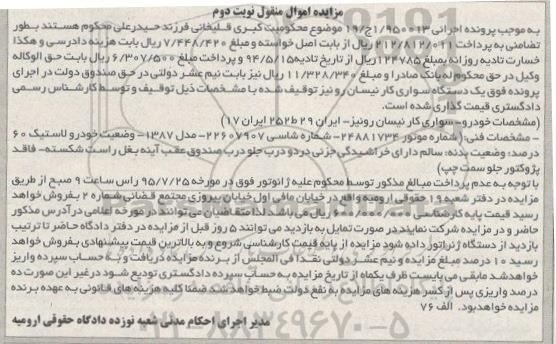 مزایده اموال منقول نوبت دوم
به موجب پرونده اجرائی ۹۵۰۰۱۳/ج۱۹ موضوع محکومیت کبری قلیخانی فرزند حیدرعلی محکوم هستند بطور
تضامنی به پرداخت ۲۱۲/۸۱۲/۰۱۱ ریال از بابت اصل خواسته و مبلغ ۷/۴۴۸/۴۲۰ ریال بابت هزینه دادرسی و هکذا
خسارت تادیه روزانه بمبلغ ۱۲۴۷۸۵ ریال از تاریخ تادیه ۹۴/۵/۱۵ و پرداخت مبلغ ۶/۳۰۷/۵۰۰ ریال بابت حق الوکاله
وکیل در حق محکوم له بانک صادرا و مبلغ ۱۱/۳۲۸/۳۴۰ ریال نیز بابت نیم عشر دولتی در حق صندوق دولت در اجرای
پرونده فوق یک دستگاه سواری کار نیسان رونیز توقیف شده با مشخصات ذیل توقیف و توسط کارشناس رسمی
دادگستری قیمت گذاری شده است.
(مشخصات خودرو- سواری کار نیسان رونیز- ایران ۲۹ ط ۲۵۲ ایران ۱۷)
- مشخصات فنی: (شماره موتور ۲۴۸۸۱۷۳۴- شماره شاسی ۲۲۶۰۷۹۰۷- مدل ۱۳۸۷- وضعیت خودرو لاستیک ۶۰
درصد: وضعیت بدنه: سالم دارای خراشیدگی جزئی در دو درب جلو درب صندوق عقب آینه بغل راست شکسته- فاقد
پژوکتور جلو سمت چپ)
با توجه به عدم پرداخت مبالغ مذکور توسط محکوم علیه ژانوتور فوق در مورخه ۹۵/۷/۲۵ راس ساعت ۹ صبح از طریق
مزایده در دفتر شعبه ۱۹ حقوقی ارومیه واقع در خیابان مافی اول خیابان پیروزی مجتمع قضائی شماره ۲ بفروش خواهد
رسید قیمت پایه کارشناسی ریال می باشد. لذا متقاضیان می توانند در مورخه اعلامی در آدرس مذکور
حاضر و در مزایده شرکت نمایند در صورت تمایل به بازدید می توانند ۵ روز قبل از مزایده در دفتر دادگاه حاضر تا ترتیب
بازدید از دستگاه ژنراتور داده شود مزایده از پایه قیمت کارشناسی شروع و به بالاترین قیمت پیشنهادی بفروش خواهد
رسید ۱۰ درصد مبلغ مزایده و نیم عشر دولتی نقدا فی المجلس از برنده مزایده دریافت و به حساب سپرده واریز
خواهد شد مابقی می بایست ظرف یکماه از تاریخ مزایده به حساب سپرده دادگستری تودیع شود در غیر این صورت ده
درصد واریزی پس از کسر هزینه های مزایده به نفع دولت ضبط خواهد شد ضمنا کلیه هزینه های قانونی به عهده برنده
مزایده خواهد بود. الف ۷۶
مدیر اجرای احکام مدنی شعبه نوزده دادگاه حقوقی ارومیه
۰۲۱-۸۸۳۴۹۶۷۰-۵